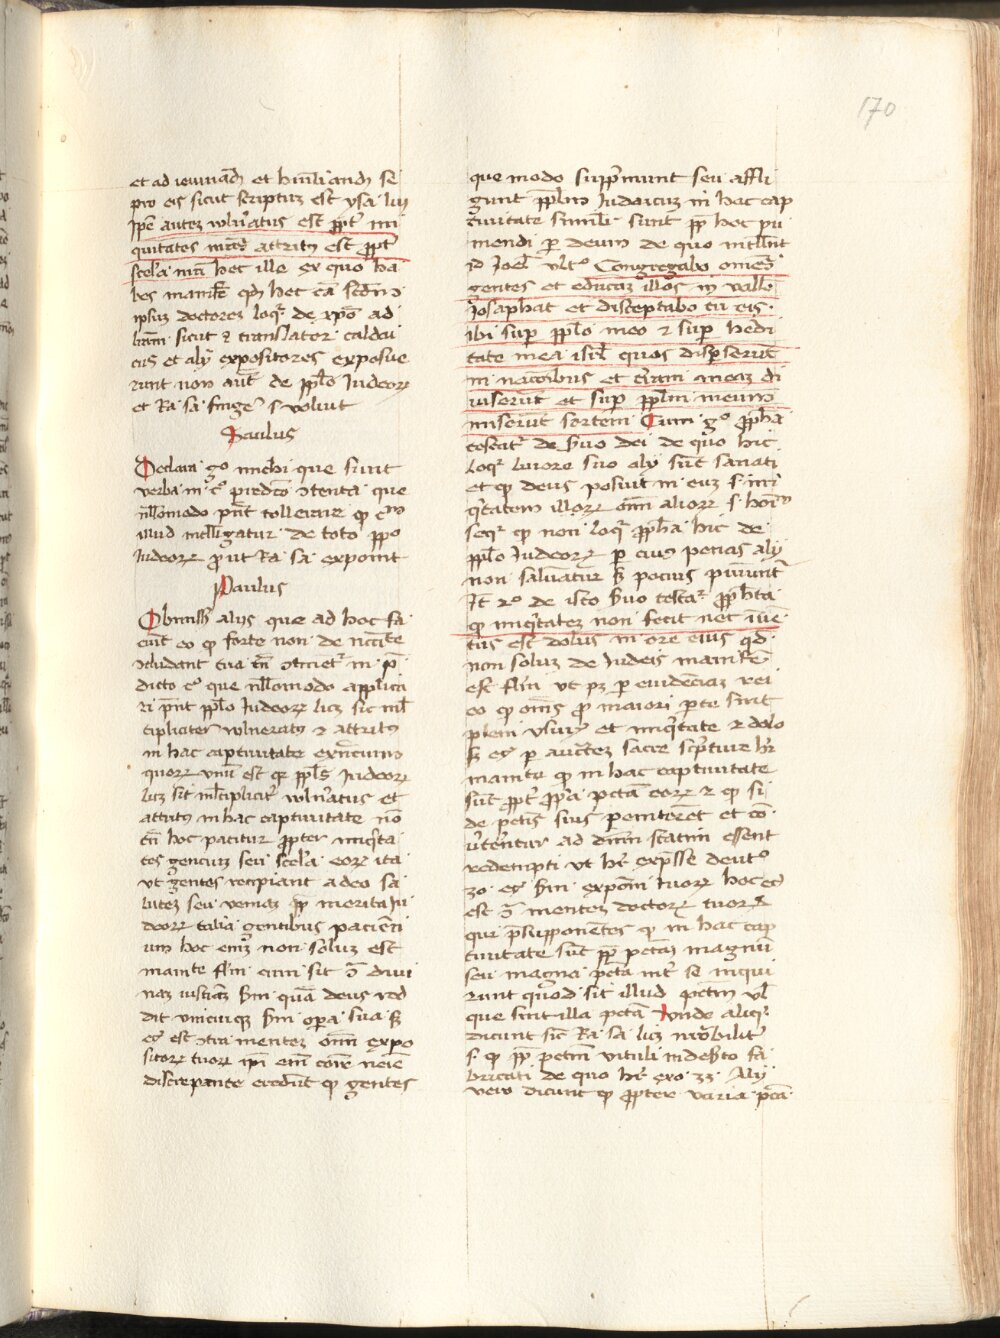 170
et ad ieiunãdũ et humiliandũ se
pro eis sicut scriptum est ysa liii
Ipse autem vulneratus est ppt ini
quitates nr̃as attritus est ppt
scelera nr̃a hec ille ex quo ha
bes manifẽ qd hec eã scdm
ipsum doctorem loqr de xpo ad
lr̃am sicut et translator caldai
cus et alij expositores exposue
runt non aut de pplo Iudeorz
et Ra sa fingere voluit
Saulus
Declara go michi que sunt
verba in c predco contenta que
nllomodo pñt tollerare qp cum
illud intelligatur de toto ppo
Iudeorz prout Ra sa exponit
Paulus
Obmissis alijs que ad hoc fa
ciunt eo qp forte non de nccitate
concludant tria tñ continet in p
dicto c que nllomodo applica
ri pñt pplo Iudeorz licz sic mul
tipliciter vulneratus et attritus
in hac captivitate
quorz unũ est qr ppls Iudeorz
licz sit mltiplicitr vulnatus et
attritus in hac captivitate nõ
tñ hoc patitur propter iniqta
tes gencium seu scelera eorz ita
ut gentes recipiant a deo sa
lutem seu veniam ppr merita Iu
deorz talia gentibus pacienti
um hoc enim non solum est
manifeste flm cum sit contra divi
nam iusticiam sm quã deus red
dit unicuique sm opera sua sz
eciam est contra mentem oim expo
sitorz tuorz ipi eni coiter nemine
discrepante credunt qp gentes
que modo supprimunt seu affli
gunt pplm Iudaicum in hac cap
tivitate simili sunt ppr hoc pu
niendi per deum de quo intellnt
id Joel ulto Congregabo omnes
gentes et educam illos in valle
Josaphat et disceptabo cu eis
ibi sup pplo meo et sup hedi
tate mea isrl quos disperserunt
in nacionibus et terram meam di
viserunt et sup pplm meum
miserunt sortem Cum go propha
testatr de suo dei de quo hic
loqr livore suo alij sunt sanati
et qp deus posuit in eum s ini
qtatem illorz omi aliorz s hoim
seqr qp non loqr ppha hic de
pplo Iudeorz per cuius penas alij
non salvantur sz pocius puniunt
It 2o de isto suo testatr ppheta
qp iniqtatem non fecit nec inve
tus est dolus in ore eius qd
non solum de Iudeis manifẽ
est flm ut pz per evidenciam rei
eo qp omnes pro maiori parte sunt
pleni usuris et iniqtate et dolo
sz eciam per auctem sacre scripture hr
manifeste qp in hac captivitate
sunt ppt ppria pctã eorz et qp si
de pctis suis peniterent et con
vterentur ad dnm statim essent
redempti ut hr expsse deut
30 eciam sm exponi tuorz hoc eciam
est contra mentem doctorz tuorz
qui psupponentes qp in hac cap
tivitate sunt ppr pctm magnũ
seu magna pcta intr se inqui
runt quod sit illud pctm vl
que sint illa pcta Unde aliqi
dicunt sicut Ra sa licz
s qp ppr pctm vituli indesto fa
bricati de quo hr exo 33 Alij
vero dicunt qp propter varia pctã